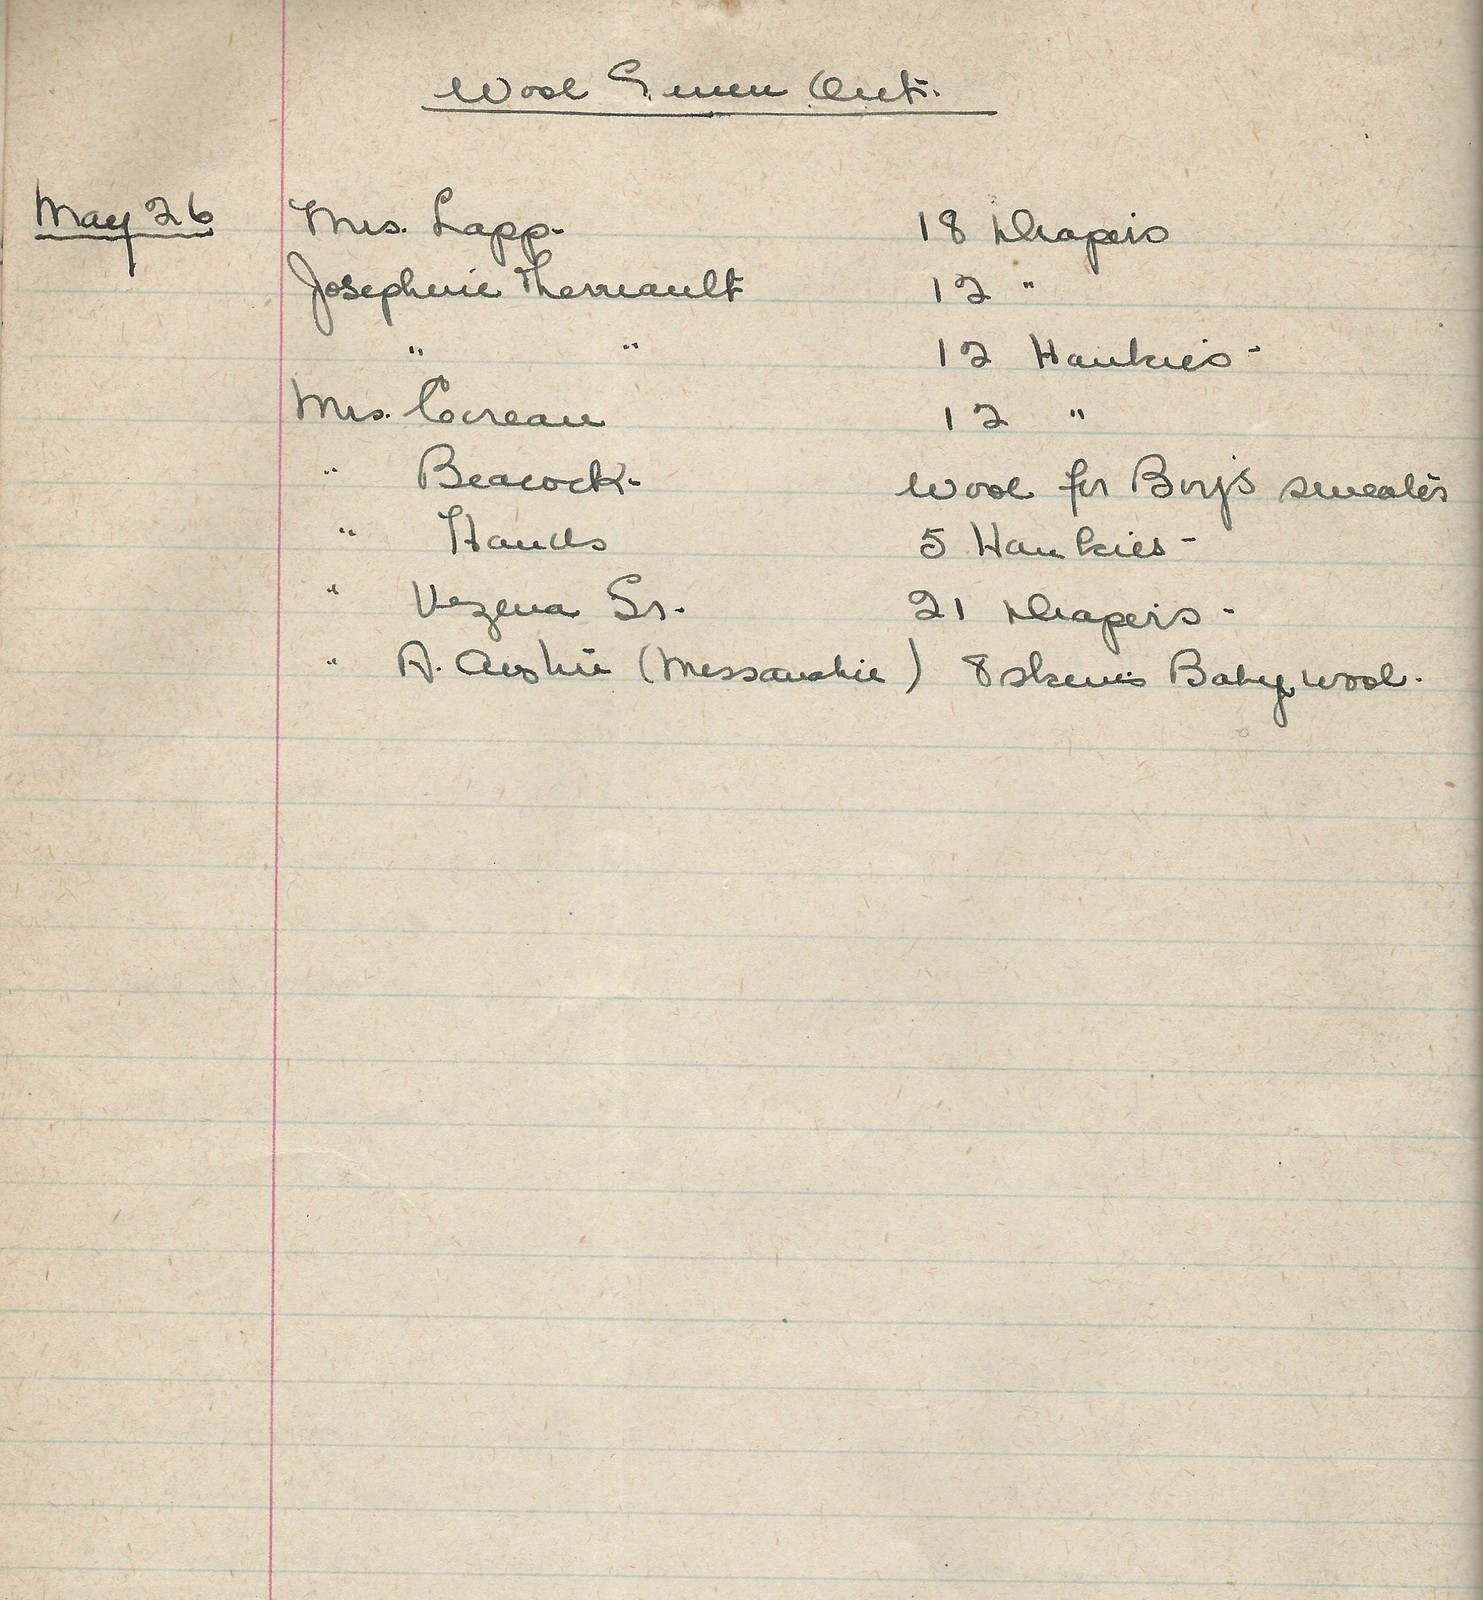 Wool Given Out.
May 26 Mrs. Lapp. 18 Diapers
Josephine Therriault 12 "
" " 12 Hankies -
Mrs. Comeau 12 "
" Beacock. Wool for Boy's sweaters
" Hands 5 Hankies -
" Vezina Sr. 21 Diapers -
" A. Austin (Missanabie) 8 skeins Baby wool.